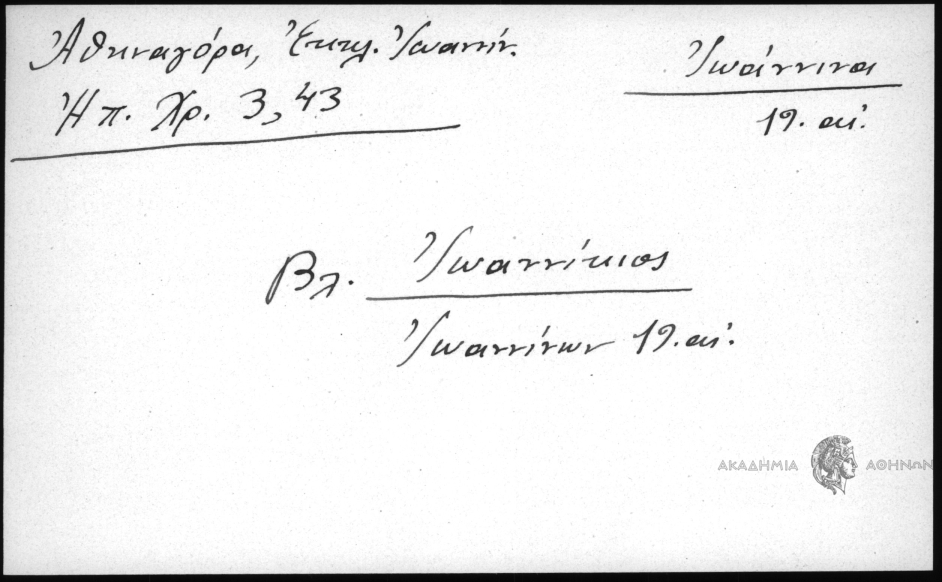 Ἀθηναγόρα, Ἐκκλ. Ἰωαννίν.
Ἠπ. Χρ. 3, 43
Ἰωάννινα
19. αἰ.
Βλ. Ἰωαννίκιος
Ἰωαννίνων 19. αἰ.
ΑΚΑΔΗΜΙΑ ΑΘΗΝΩΝ